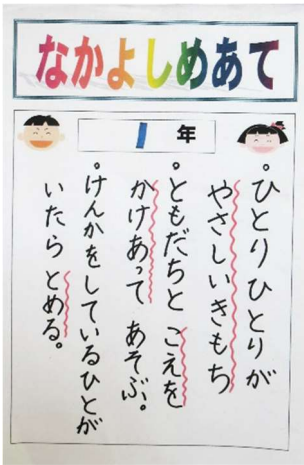 なかよしめあて
1年
。ひとりひとりが
やさしいきもち
。ともだちと こえを
かけあって あそぶ。
。けんかをしているひとが
いたら とめる。